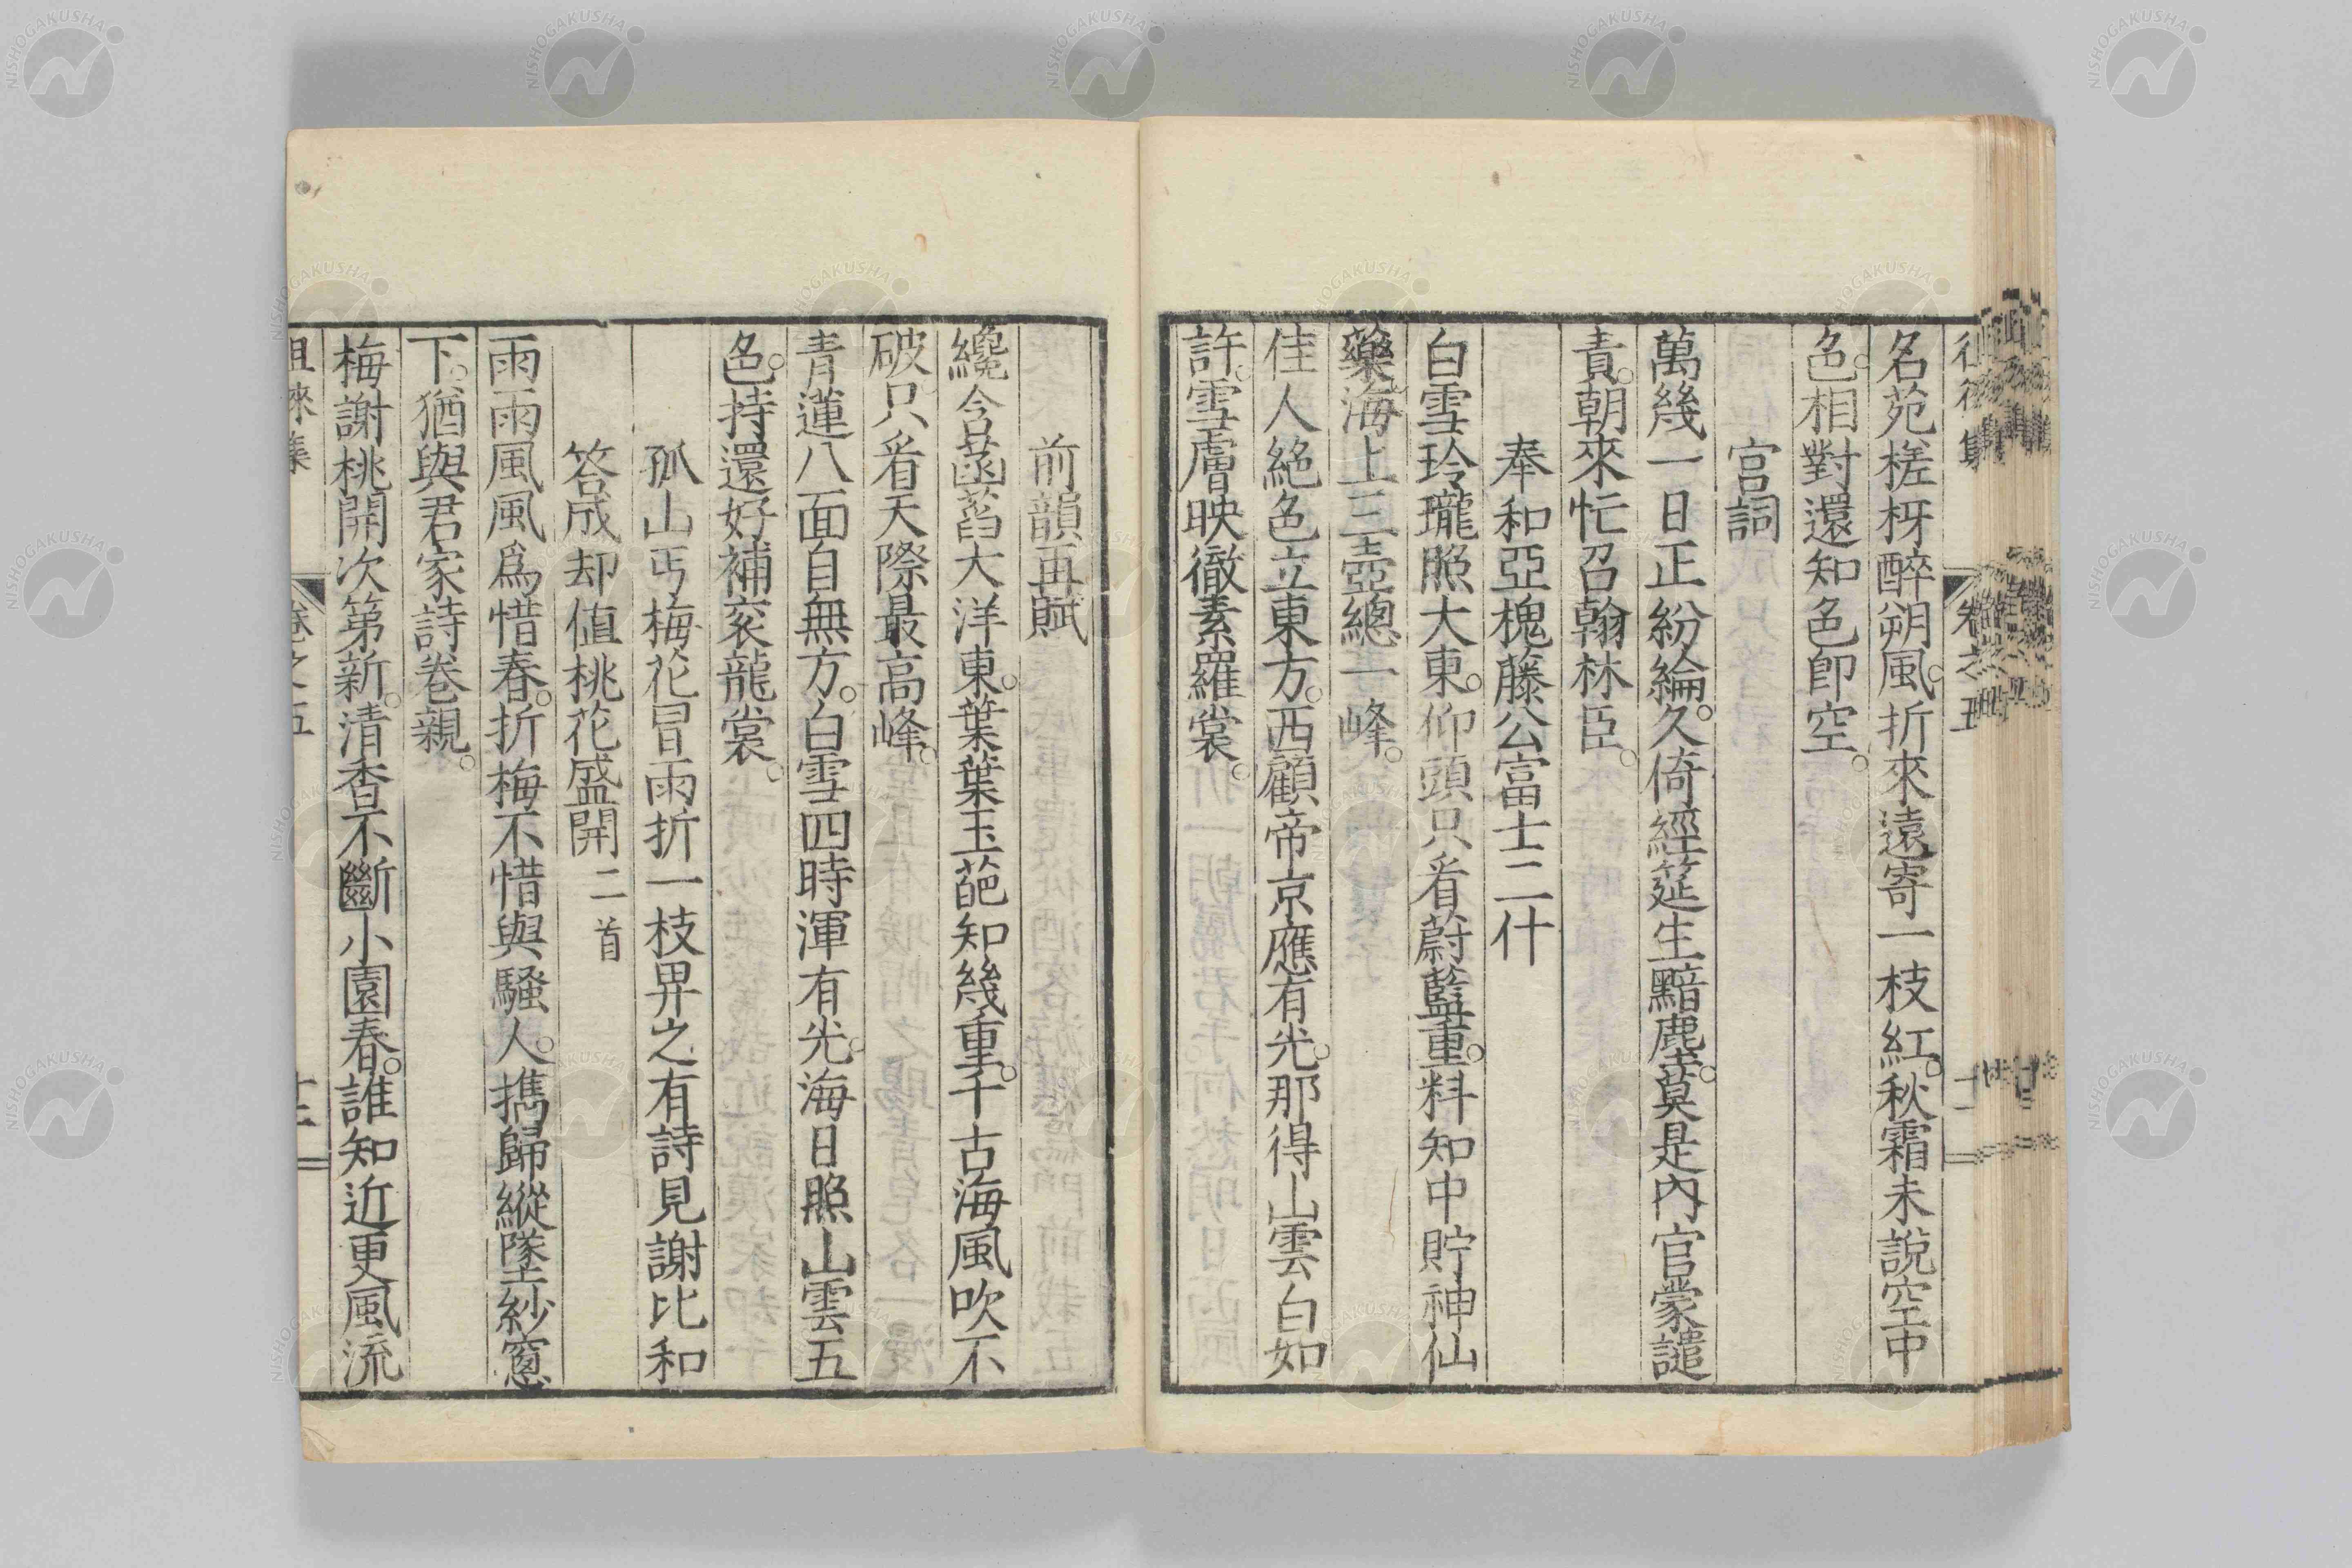 名苑槎枒醉朔風。折來遠寄一枝紅。秋霜未說空中
色。相對還知色卽空。
宮詞
萬幾一日正紛綸。久倚經筵生黯塵。莫是內官蒙譴
責。朝來忙召翰林臣。
奉和亞槐藤公富士二什
白雪玲瓏照大東。仰頭只看蔚藍重。料知中貯神仙
藥。海上三壺總一峰。
佳人絕色立東方。西顧帝京應有光。那得山雲白如
許。雪膚映徹素羅裳。
前韻再賦
纔含菡萏大洋東。葉葉玉葩知幾重。千古海風吹不
破。只看天際最高峰。
青蓮八面自無方。白雪四時渾有光。海日照山雲五
色。持還好補袞龍裳。
孤山丐梅花冒雨折一枝畀之有詩見謝比和
答成却值桃花盛開二首
雨雨風風爲惜春。折梅不惜與騷人。攜歸縱墜紗窻
下。猶與君家詩卷親。
梅謝桃開次第新。清香不斷小園春。誰知近更風流
徂徠集 卷之五 十二
NISHOGAKUSHA